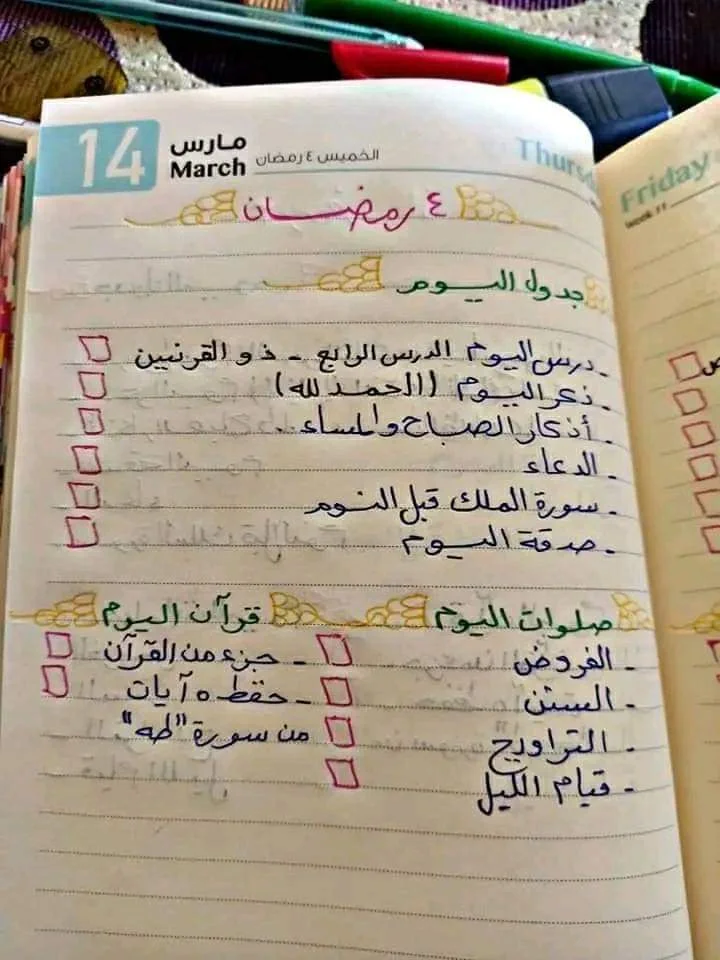 14 مارس
March
الخميس ٤ رمضان
Thursd
Friday
Week 11
٤ رمضان
جدول اليوم
- درس اليوم الدرس الرابع - ذو القرنين
- ذكر اليوم (الحمد لله)
- أذكار الصباح والمساء.
- الدعاء
- سورة الملك قبل النوم
- صدقة اليوم
صلوات اليوم
- الفروض
- السنن
- التراويح
- قيام الليل
قرآن اليوم
- جزء من القرآن
- حفظ ٥ آيات
من سورة "طه"